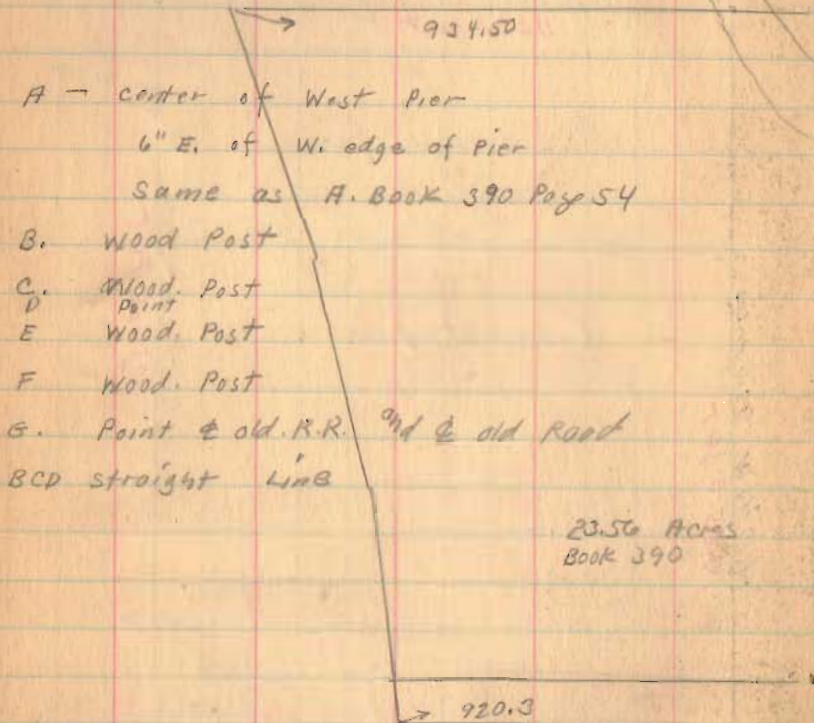 934.50
A - center of West Pier
6" E. of W. edge of Pier
Same as A. Book 390 Page 54
B. Wood Post
C. Wood. Post
D Point
E Wood. Post
F Wood. Post
G. Point ℄ old. R.R. and ℄ old Road
BCD straight Line
23.56 Acres
Book 390
920.3